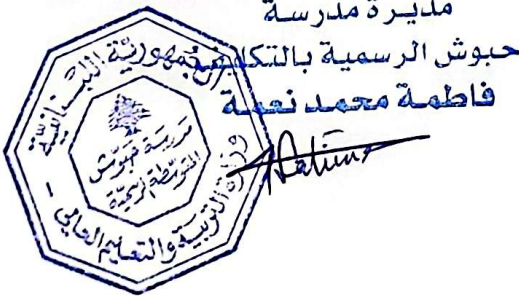 مديرة مدرسة
حبوش الرسمية بالتكليف
فاطمة محمد نعمة
الجمهورية اللبنانية
مدرسة حبوش
المتوسطة الرسمية
وزارة التربية والتعليم العالي -